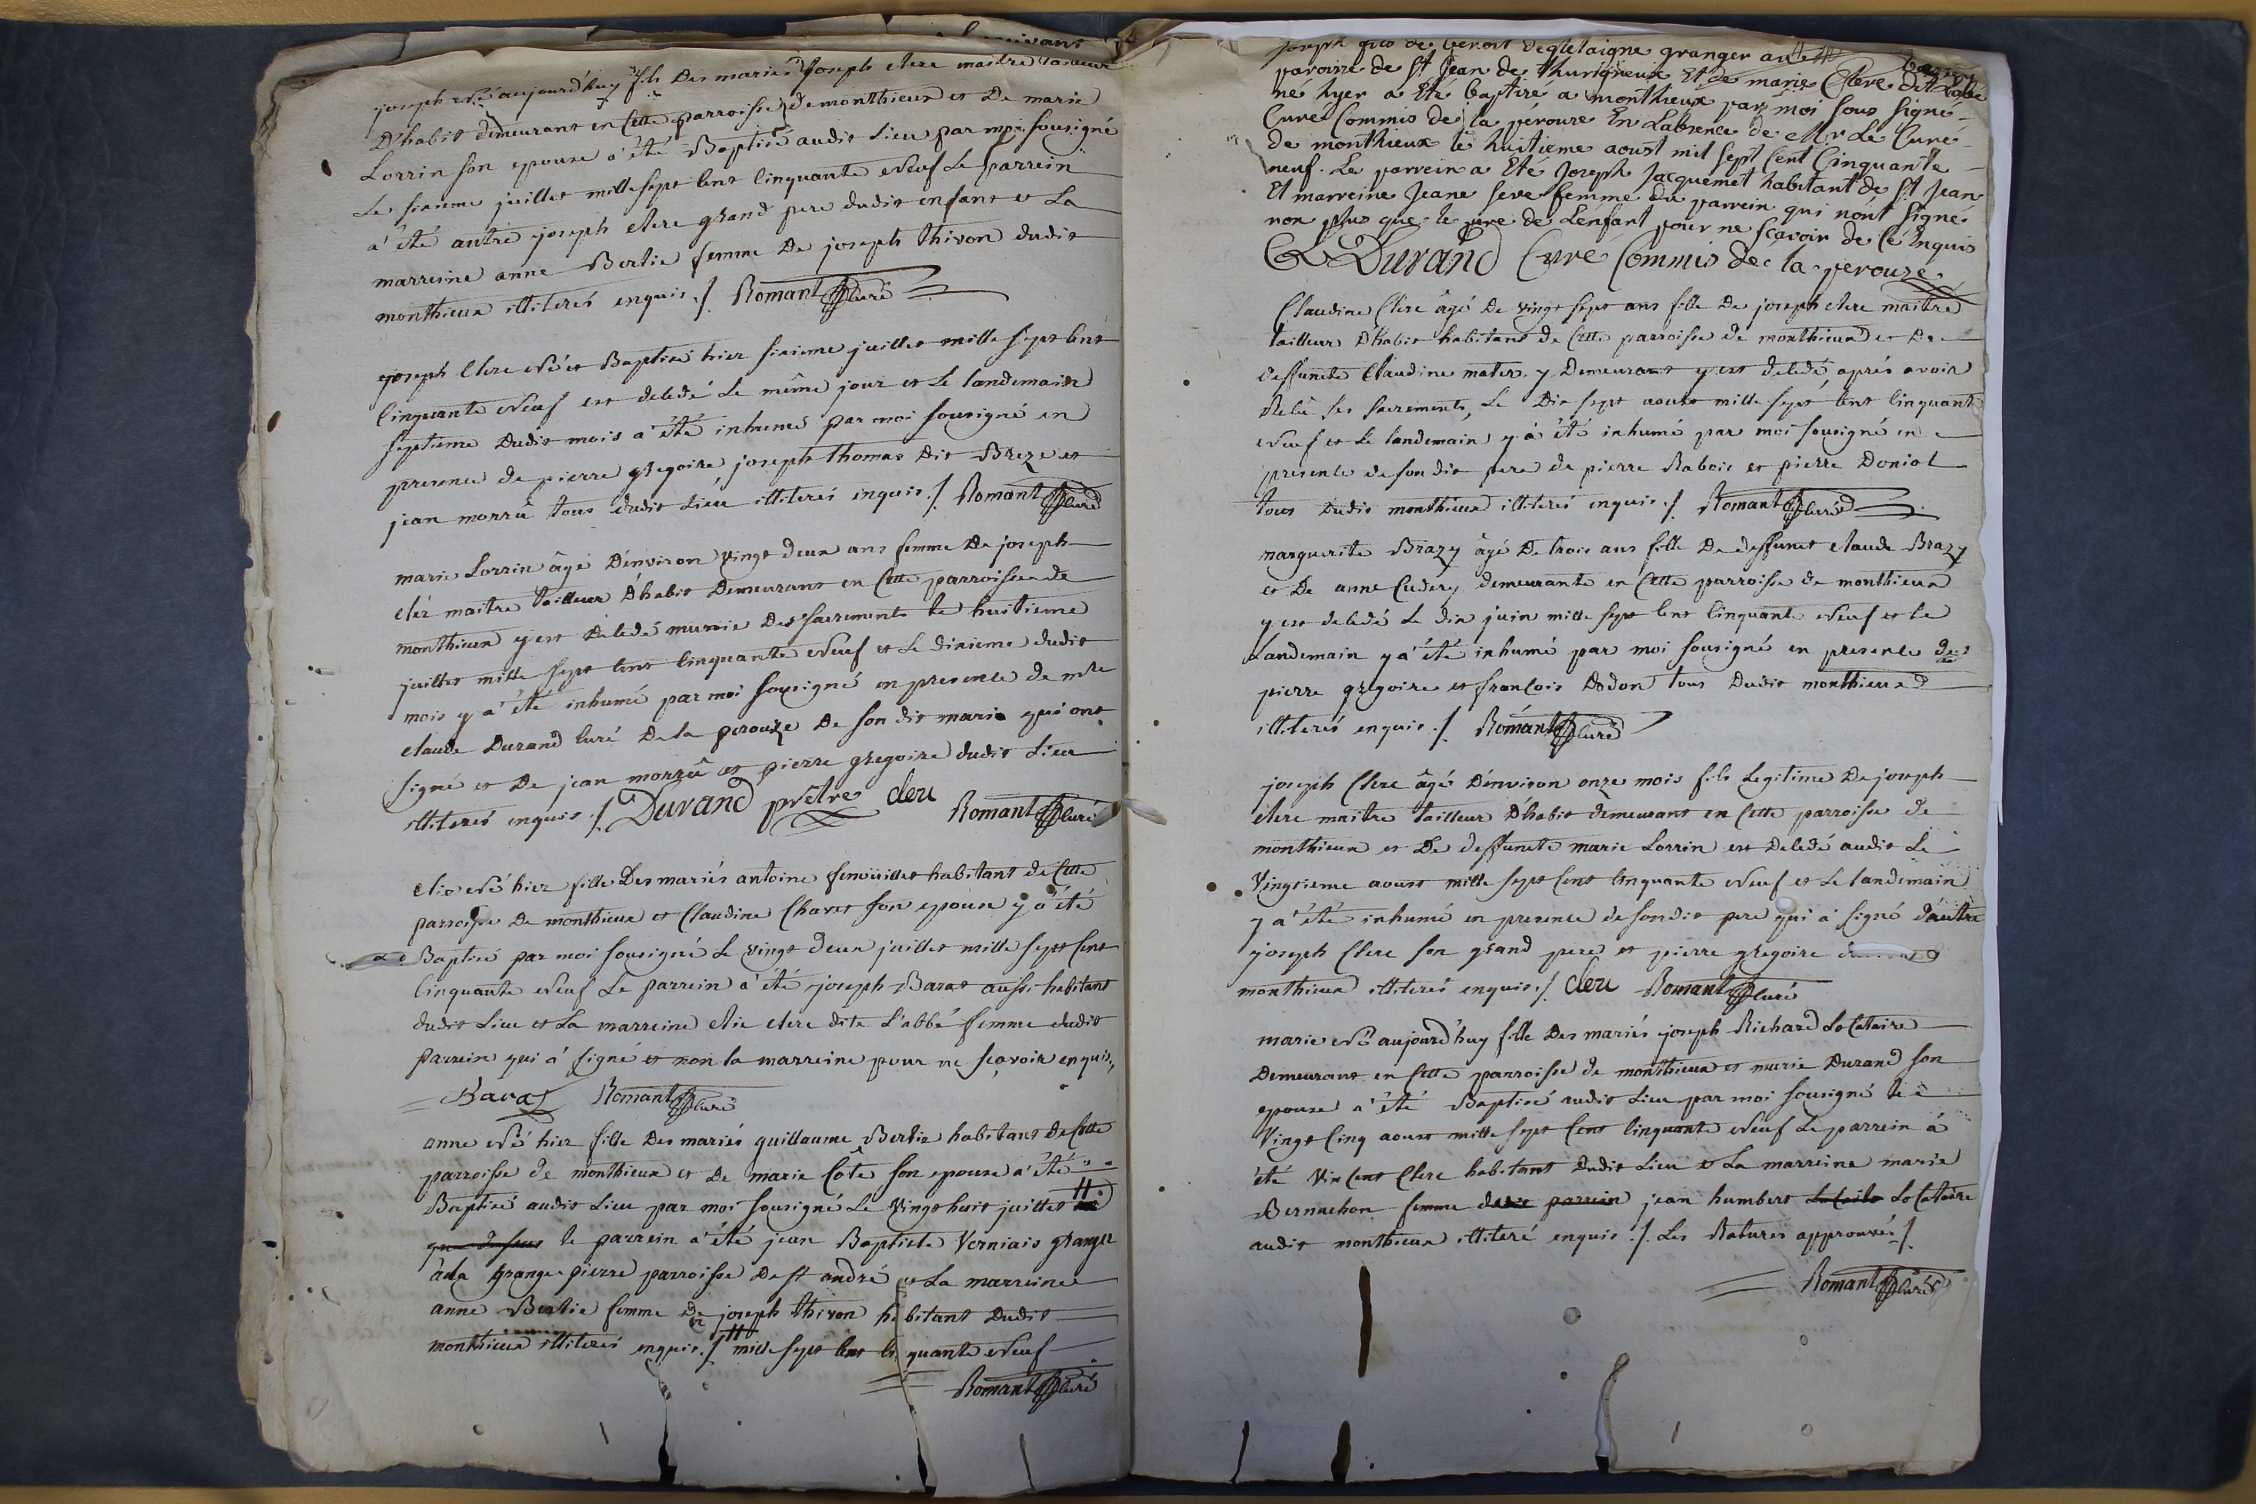 joseph né aujourd'huy fils Des mariés joseph clerc maitre tailleur
D'habit demeurant en Cette parroisse de monthieux et De marie
Lorrin son epouse a été Baptisé audit Lieu par moi sousigné
Le sixieme juillet mille sept Cent Cinquante Neuf Le parrein
a été autre joseph clerc grand pere dudit enfant et La
marreine anne Bertie femme De joseph thivon dudit
monthieux illiterés enquis ./. Romant Curé
joseph Clerc Né et Baptisé hier sixieme juillet mille sept Cent
Cinquante Neuf est decedé Le même jour et Le landemain
septieme Dudit mois a été inhumé par moi sousigné en
presence de pierre gregoire, joseph thomas Dit Breze et
jean morrû tous dudit Lieu illiterés enquis ./. Romant Curé
marie Lorrin âgé D'environ vingt deux ans femme De joseph
cler maitre tailleur D'habit Demeurant en Cette parroisse de
monthieux y est Decedé munie Des sacrements le huitieme
juillet mille sept Cent Cinquante Neuf et Le dixieme dudit
mois y a été inhumé par moi sousigné en presence de mre
claude Durand Curé De la perouze De son dit mari qui ont
signé et De jean morrû et pierre gregoire dudit Lieu
illiterés enquis ./. Durand prêtre clerc Romant Curé
Née hier fille Des mariés antoine fenouillet habitant de Cette
parroisse De monthieux et Claudine Chavet son epouse y a été
Baptisé par moi sousigné Le vingt deux juillet mille sept Cent
Cinquante Neuf Le parrein a été joseph Barat aussi habitant
dudit Lieu et La marreine clerc dite L'abbé femme dudit
parrein qui a signé et non la marreine pour ne sçavoir enquis
Barat Romant Curé
anne Né hier fille Des mariés guillaume Bertie habitant de Cette
parroisse de monthieux et De marie Côte son epouse a été
Baptisé audit Lieu par moi sousigné Le vingt huit juillet #
le parrein a été jean Baptiste Verniais granger
à la grange pierre parroisse De st andré et La marreine
anne Bertie femme De joseph thivon habitant Dudit
monthieux illiterés enquis ./. # mille sept Cent Cinquante Neuf
Romant Curé
joseph fils de Benoit granger au
paroisse de St Jean de thurigneux Et de marie Clerc dit Labbé
né hyer a Eté baptisé a monthieux par moi sous signé
Curé Commis de la pérouze En Labsence de Mr Le Curé
de monthieux le huitieme aoust mil sept Cent Cinquante
neuf. Le parrein a Eté Joseph Jacquemet habitant de St Jean
Et marreine Jeane seve femme du parrein qui n'ont signé
non plus que le pere de L'enfant pour ne sçavoir de Cé Enquis
Durand Curé Commis de la perouze
Claudine Clerc âgé De vingt sept ans fille De joseph clerc maitre
tailleur D'habit habitant de Cette parroisse de monthieux et De
deffuncte Claudine mater y Demeurant y est decedé aprés avoir
Reçû ses sacrements, Le Dix sept aoust mille sept Cent Cinquante
Neuf et Le landemain y a été inhumé par moi sousigné en
presence de son dit pere de pierre Rabois et pierre Doniol
tous Dudit monthieux illiterés enquis ./. Romant Curé
marguerite Brazy âgé De trois ans fille De deffunct claude Brazy
et De anne Cudery demeurante en Cette parroisse de monthieux
y est decedé Le dix juin mille sept Cent Cinquante Neuf et le
Landemain y a été inhumé par moi sousigné en presence de
pierre gregoire et françois Dodon tous Dudit monthieux
illiterés enquis ./. Romant Curé
joseph Clerc âgé D'environ onze mois fils Legitime De joseph
clerc maitre tailleur D'habit demeurant en Cette parroisse de
monthieux et De deffuncte marie Lorrin est Decedé audit Le
Vingtieme aoust mille sept Cent Cinquante Neuf et Le landemain
y a été inhumé en presence de son dit pere qui a signé d'autre
joseph Clerc son grand pere et pierre gregoire
monthieux illiterés enquis ./. clerc Romant Curé
marie Né aujourd'huy fille Des mariés joseph Richard LoCataire
Demeurant en Cette parroisse de monthieux et marie Durand son
epouse a été Baptisé audit Lieu par moi sousigné le
Vingt Cinq aoust mille sept Cent Cinquante Neuf Le parrein a
été Vincent Clerc habitant Dudit Lieu et La marreine marie
Bernachon femme dudit parrein jean humbert LoCataire
audit monthieux illiteré enquis ./. Les Ratures approuvés ./.
Romant Curé